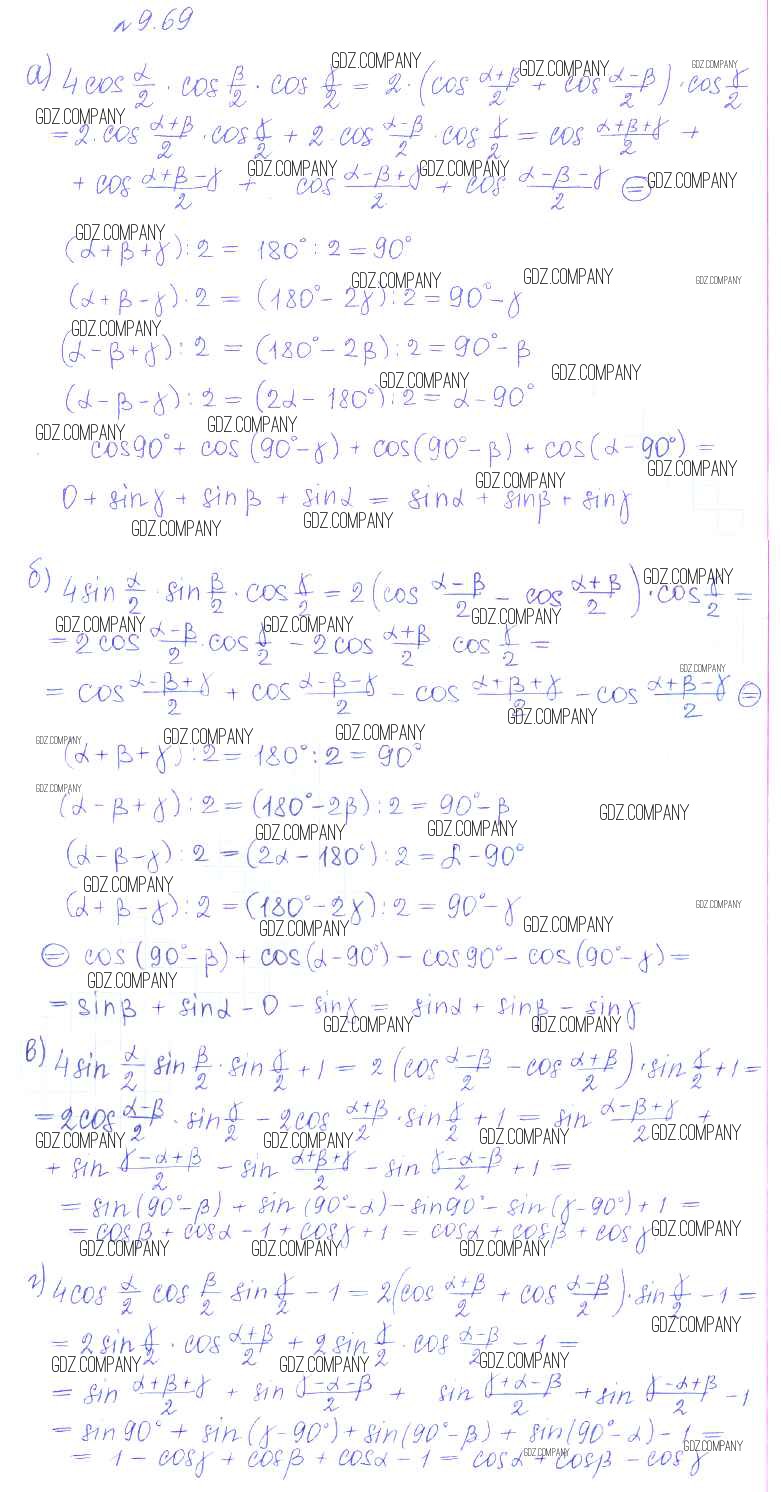 №9.69
а) 4cos α/2 · cos β/2 · cos γ/2 = 2·(cos (α+β)/2 + cos (α-β)/2)·cos γ/2
= 2·cos (α+β)/2 · cos γ/2 + 2·cos (α-β)/2 · cos γ/2 = cos (α+β+γ)/2 +
+ cos (α+β-γ)/2 + cos (α-β+γ)/2 + cos (α-β-γ)/2 ⊜
(α+β+γ):2 = 180°:2 = 90°
(α+β-γ)·2 = (180°-2γ):2 = 90°-γ
(α-β+γ):2 = (180°-2β):2 = 90°-β
(α-β-γ):2 = (2α-180°):2 = α-90°
cos90° + cos(90°-γ) + cos(90°-β) + cos(α-90°) =
0 + sinγ + sinβ + sinα = sinα + sinβ + sinγ
б) 4sin α/2 · sin β/2 · cos γ/2 = 2(cos (α-β)/2 - cos (α+β)/2)·cos γ/2 =
= 2cos (α-β)/2 · cos γ/2 - 2cos (α+β)/2 cos γ/2 =
= cos (α-β+γ)/2 + cos (α-β-γ)/2 - cos (α+β+γ)/2 - cos (α+β-γ)/2 ⊜
(α+β+γ):2 = 180°:2 = 90°
(α-β+γ):2 = (180°-2β):2 = 90°-β
(α-β-γ):2 = (2α-180°):2 = α-90°
(α+β-γ):2 = (180°-2γ):2 = 90°-γ
⊜ cos(90°-β) + cos(α-90°) - cos90° - cos(90°-γ) =
= sinβ + sinα - 0 - sinγ = sinα + sinβ - sinγ
в) 4sin α/2 sin β/2 · sin γ/2 + 1 = 2(cos (α-β)/2 - cos (α+β)/2)·sin γ/2 + 1 =
= 2cos (α-β)/2 · sin γ/2 - 2cos (α+β)/2 · sin γ/2 + 1 = sin (α-β+γ)/2 +
+ sin (γ-α+β)/2 - sin (α+β+γ)/2 - sin (γ-α-β)/2 + 1 =
= sin(90°-β) + sin(90°-α) - sin90° - sin(γ-90°) + 1 =
= cosβ + cosα - 1 + cosγ + 1 = cosα + cosβ + cosγ
г) 4cos α/2 cos β/2 sin γ/2 - 1 = 2(cos (α+β)/2 + cos (α-β)/2)·sin γ/2 - 1 =
= 2sin γ/2 · cos (α+β)/2 + 2sin γ/2 · cos (α-β)/2 - 1 =
= sin (α+β+γ)/2 + sin (γ-α-β)/2 + sin (γ+α-β)/2 + sin (γ-α+β)/2 - 1
= sin90° + sin(γ-90°) + sin(90°-β) + sin(90°-α) - 1 =
= 1 - cosγ + cosβ + cosα - 1 = cosα + cosβ - cosγ
GDZ.COMPANY